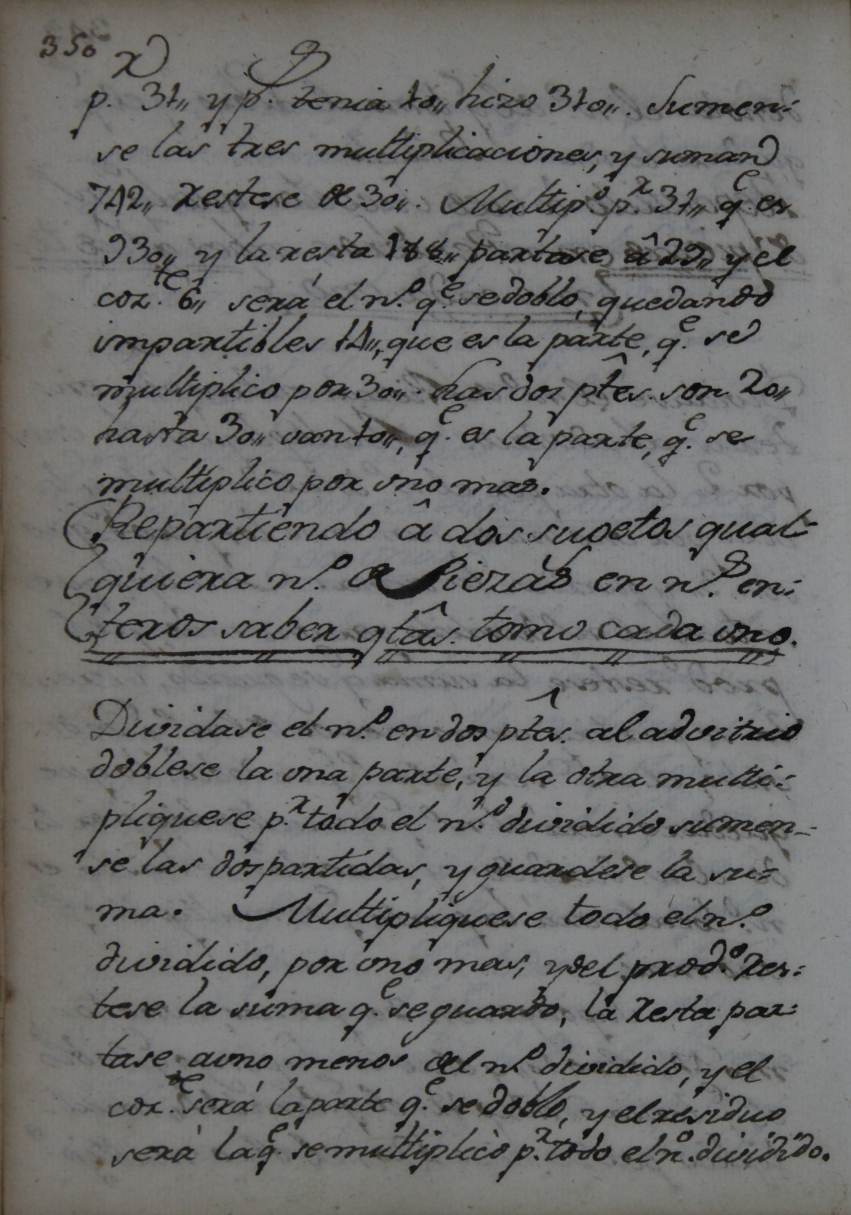 350
p.r 31,, y p.s tenia 10,, hizo 310,,. Sumen=
se las tres multiplicaciones, y suman
742,, restese de 30,,. Multip.do p.r 31,, q.e es
930,, y la resta 188,, partase â 29,, y el
coz.te 6,, será el n.o q.e se doblo, quedando
impartibles 14,, que es la parte, q.e se
multiplico por 30,,. las dos ptês. son 20,,
hasta 30,, van 10,, q.e es la parte, q.e se
multiplico por vno mas.
Repartiendo â dos sugetos qual-
quiera n.o de Piezas en n.s en=
teros saber qtâs. tomo cada vno.
Dividase el n.o en dos ptês. al advitrio
doblese la vna parte, y la otra multi=
pliquese p.r todo el n.o dividido sumen=
se las dos partidas, y guardese la su=
ma. Multipliquese todo el n.o
dividido, por vno mas, y del prod.o res=
tese la suma q.e se guardo, la resta par=
tase a vno menos del n.o dividido, y el
coz.te será la parte q.e se doblo, y el residuo
será la q.e se multiplicò p.r todo el n.o dividido.